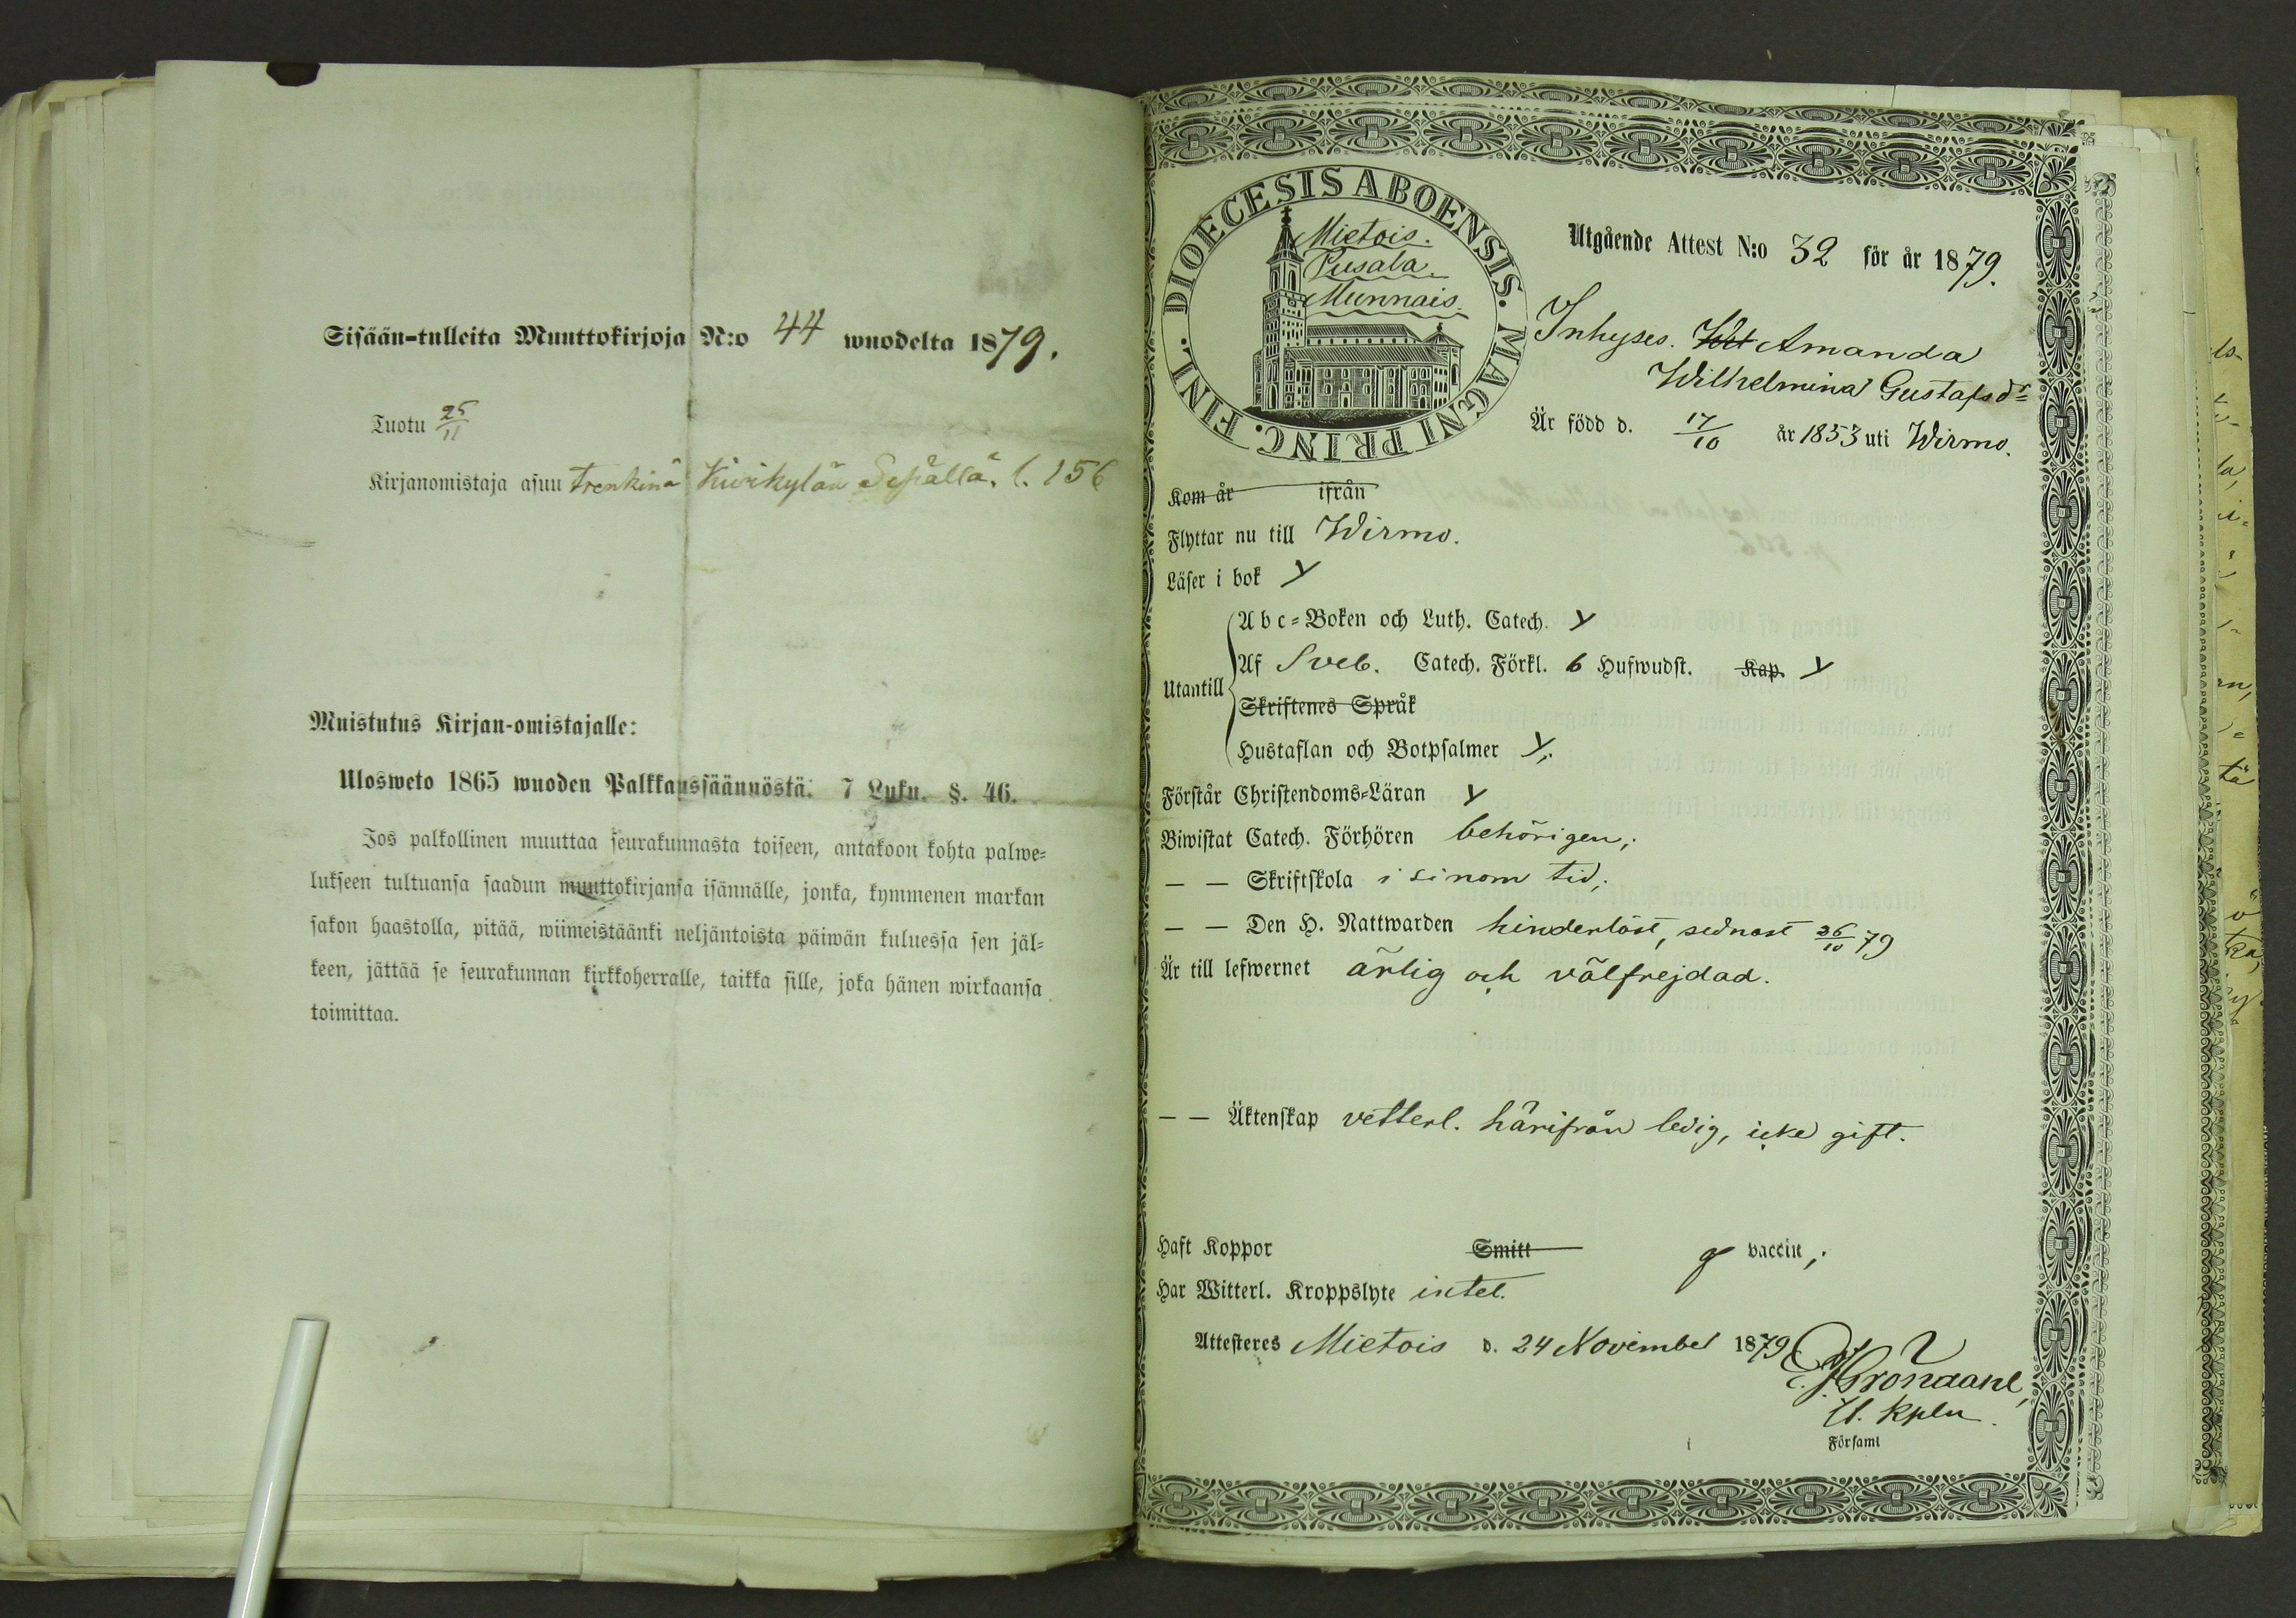 Sisään-tulleita Muuttokirjoja N:o 44 wuodelta 1879.
Tuotu 25/11
Kirjanomistaja asuu trenkinä Kiwikylän Sepällä. l. 156
Muistutus Kirjan-omistajalle:
Ulosweto 1865 wuoden Palkkaussäännöstä: 7 Luku. §. 46.
Jos palkollinen muuttaa seurakunnasta toiseen, antakoon kohta palwe-
lukseen tultuansa saadun muuttokirjansa isännälle, jonka, kymmenen markan
sakon haastolla, pitää, wiimeistäänki neljäntoista päiwän kuluessa sen jäl-
keen, jättää se seurakunnan kirkkoherralle, taikka sille, joka hänen wirkaansa
toimittaa.
DIOECESIS ABOENSIS. MAGNI PRINC. FINL.
Mietois.
Pusala
Munnais.
Utgående Attest N:o 32 för år 1879.
Inhyses. Amanda
Wilhelmina Gustafsdr
Är född d. 17/10 år 1853 uti Wirmo.
Kom år ifrån
Flyttar nu till Wirmo.
Läser i bok y
Abc-Boken och Luth. Catech. y
Utantill Af Sveb. Catech. Förkl. 6 Hufwudst. Kap. y
Skriftenes Språk
Hustaflan och Botpsalmer y;
Förstår Christendoms-Läran y
Biwistat Catech. Förhören behörigen;
— — Skriftskola i sinom tid;
— — Den H. Nattwarden hinderlöst, sednast 26/10 79
Är till lefwernet ärlig och välfrejdad.
— — Äktenskap vetterl. härifrån ledig, icke gift.
Haft Koppor Smitt g vaccin;
Har Witterl. Kroppslyte intet.
Attesteres Mietois d. 24 November 1879
Kpln.
i Församl